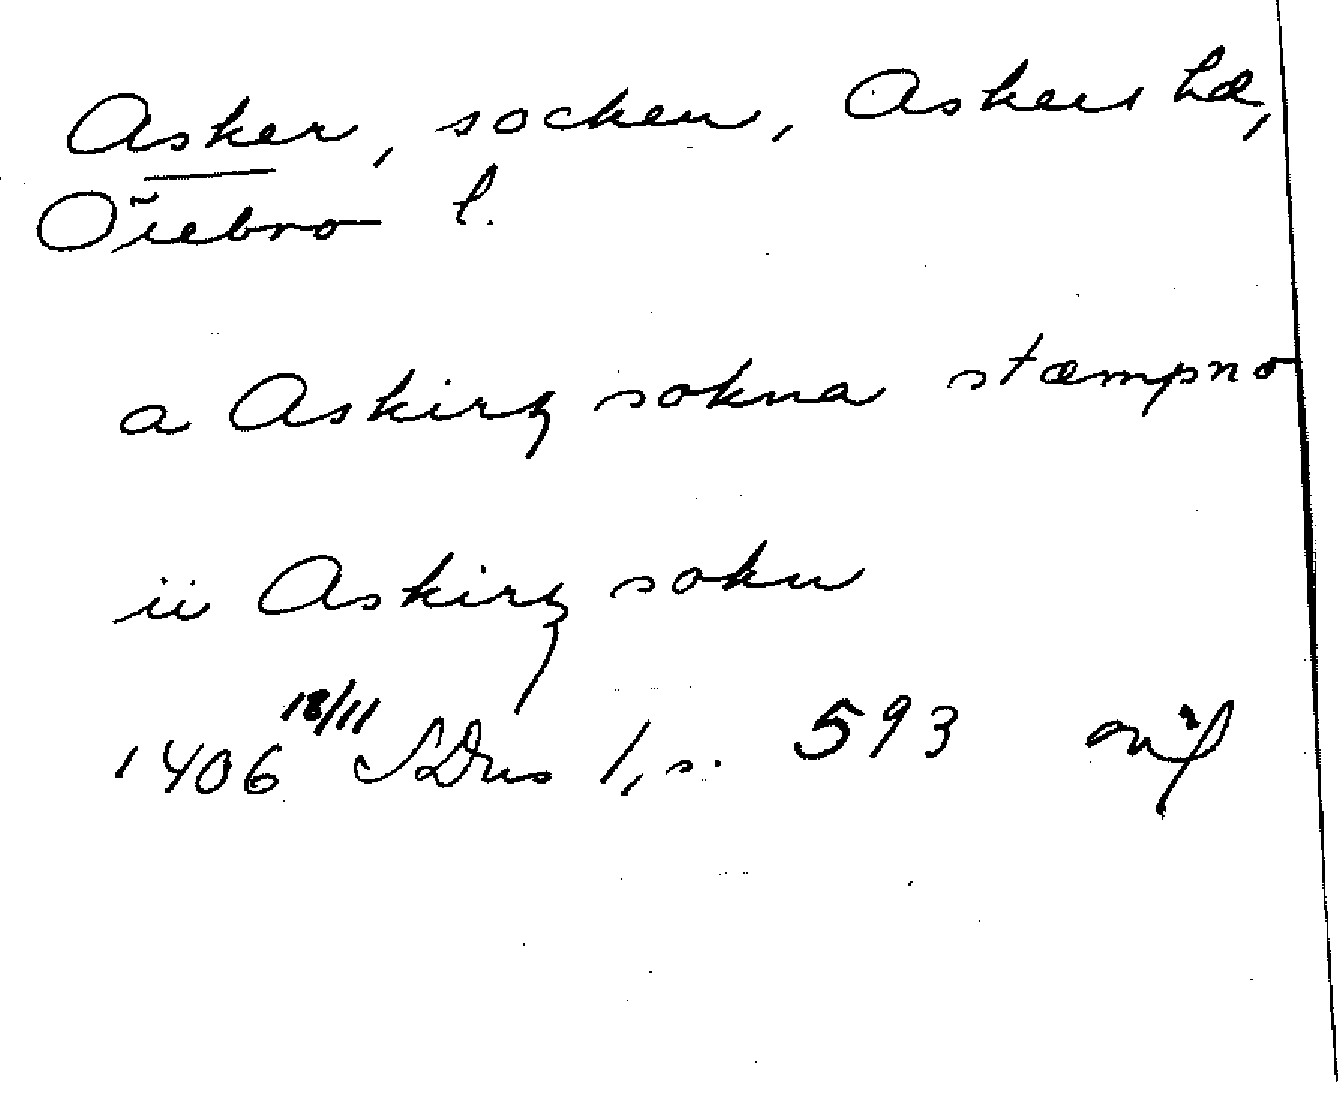 Asker, socken, Askers hd,
Örebro l.
a Askirʒ sokna stæmpno
ii Askirʒ sokn
1406 18/11 SDns 1, s. 593